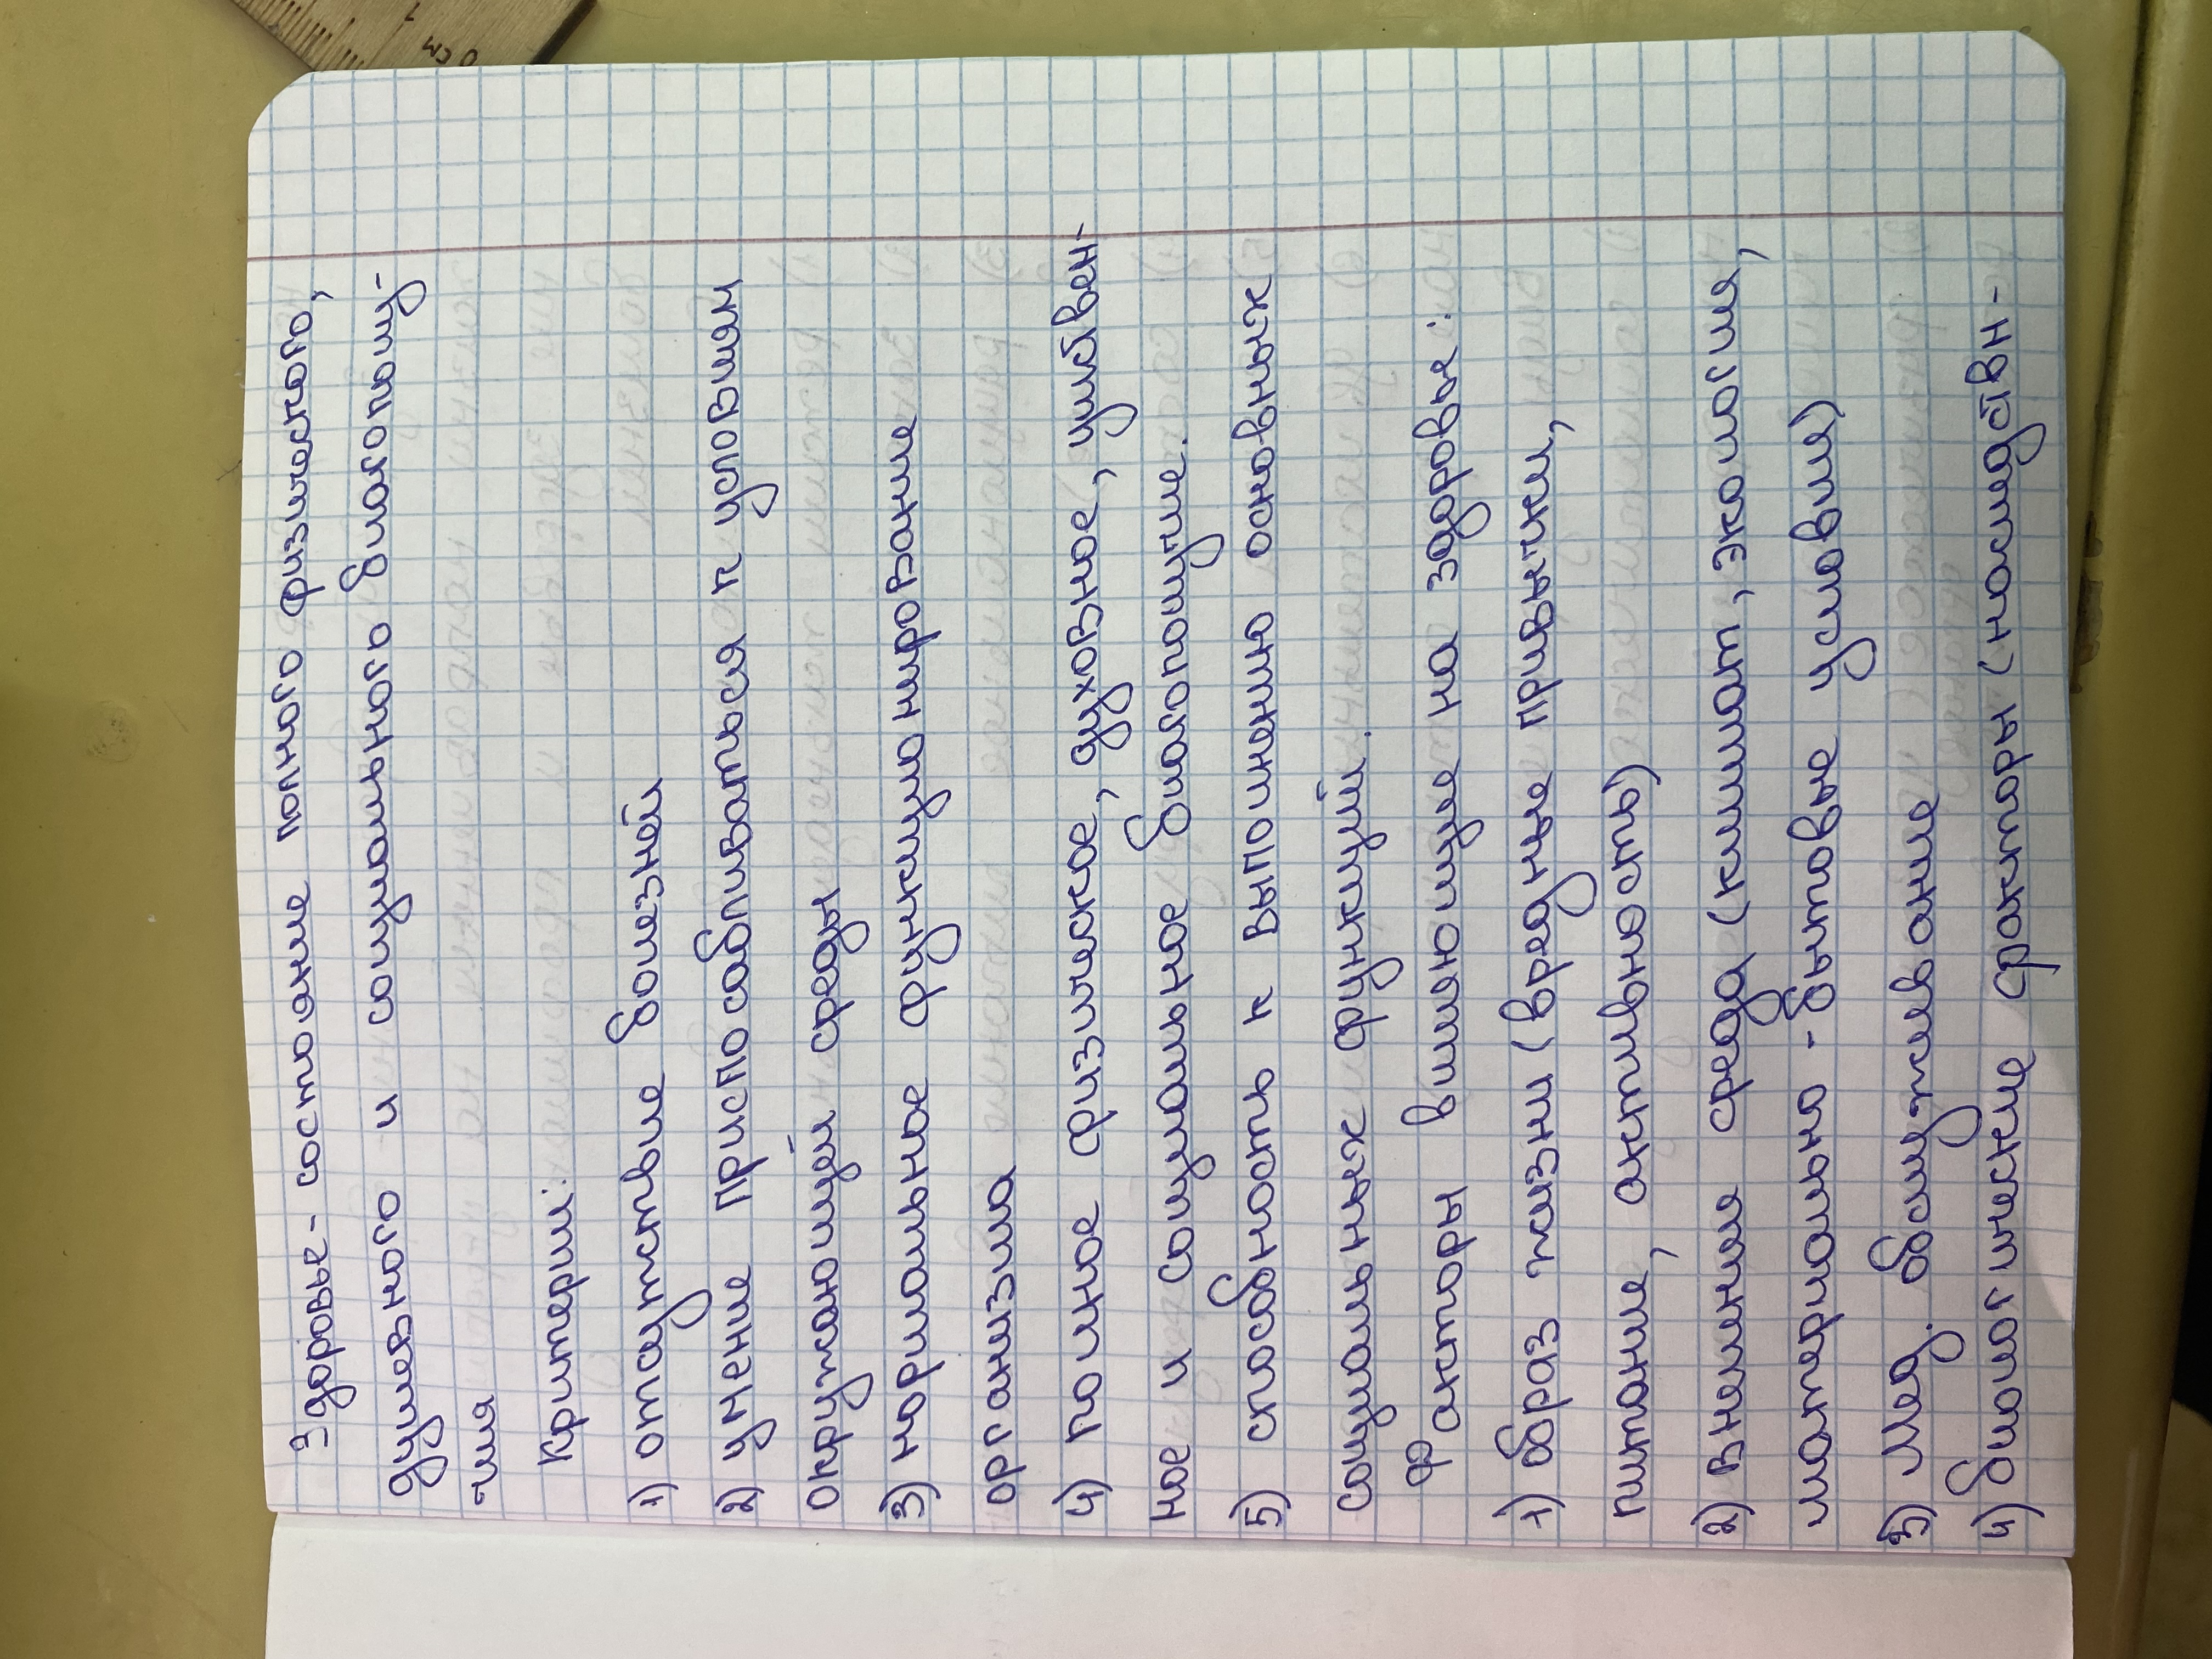 Здоровье - состояние полного физического,
душевного и социального благополу-
чия
Критерии:
1) отсутствие болезней
2) умение приспосабливаться к условиям
окружающей среды
3) нормальное функционирование
организма
4) полное физическое, духовное, умствен-
ное и социальное благополучие.
5) способность к выполнению основных
социальных функций.
Факторы влияющие на здоровье:
1) образ жизни (вредные привычки,
питание, активность)
2) внешняя среда (климат, экология,
материально - бытовые условия)
3) Мед. обслуживание
4) биологические факторы (наследствен-
0 см
1